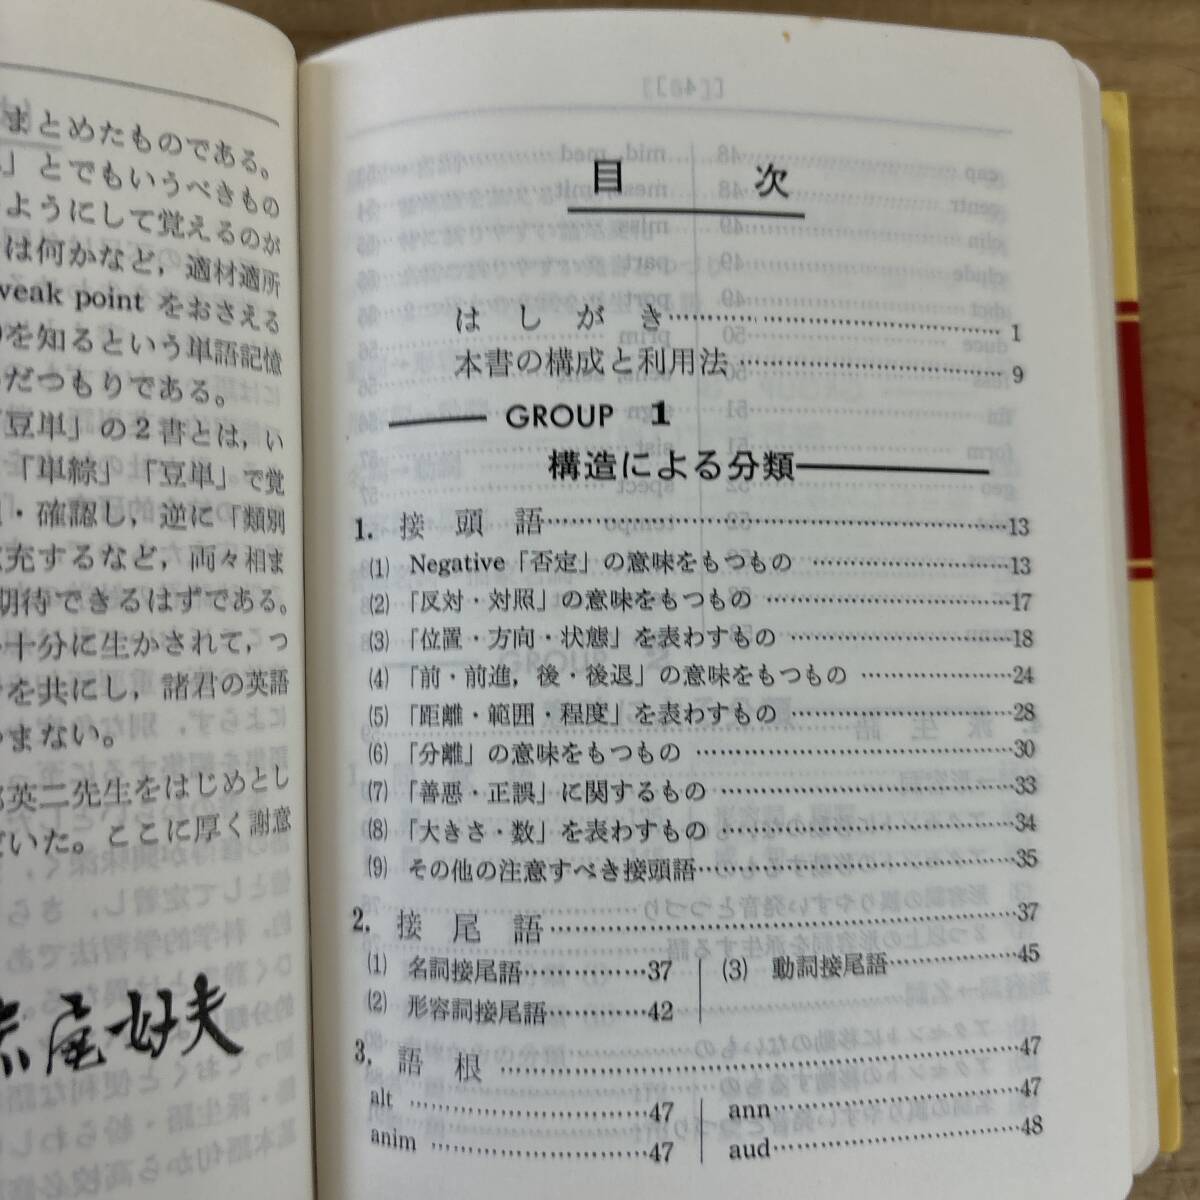 まとめたものである。
」とでもいうべきもの
ようにして覚えるのが
は何かなど，適材適所
weak point をおさえる
を知るという単語記憶
だつもりである。
豆単」の２書とは，い
「単綜」「豆単」で覚
・確認し，逆に「類別
充するなど，両々相ま
期待できるはずである。
十分に生かされて，つ
を共にし，諸君の英語
まない。
英二先生をはじめとし
いた。ここに厚く謝意
尾好夫
目次
はしがき…………………………1
本書の構成と利用法…………………………9
GROUP 1
構造による分類
1. 接頭語…………………………13
(1) Negative「否定」の意味をもつもの…………………………13
(2) 「反対・対照」の意味をもつもの…………………………17
(3) 「位置・方向・状態」を表わすもの…………………………18
(4) 「前・前進，後・後退」の意味をもつもの…………………………24
(5) 「距離・範囲・程度」を表わすもの…………………………28
(6) 「分離」の意味をもつもの…………………………30
(7) 「善悪・正誤」に関するもの…………………………33
(8) 「大きさ・数」を表わすもの…………………………34
(9) その他の注意すべき接頭語…………………………35
2. 接尾語…………………………37
(1) 名詞接尾語……………37
(2) 形容詞接尾語……………42
(3) 動詞接尾語……………45
3. 語根…………………………47
alt……………47
anim……………47
ann……………47
aud……………48